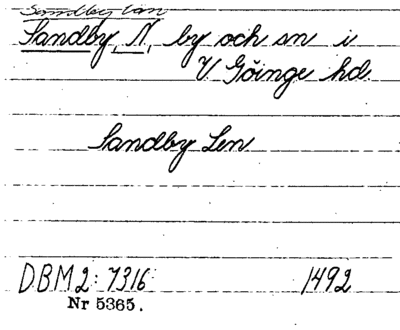 Sandby län
Sandby, N, by och sn i
V Göinge hd.
Sandby Len
DBM 2: 7316 1492
Nr 5365.